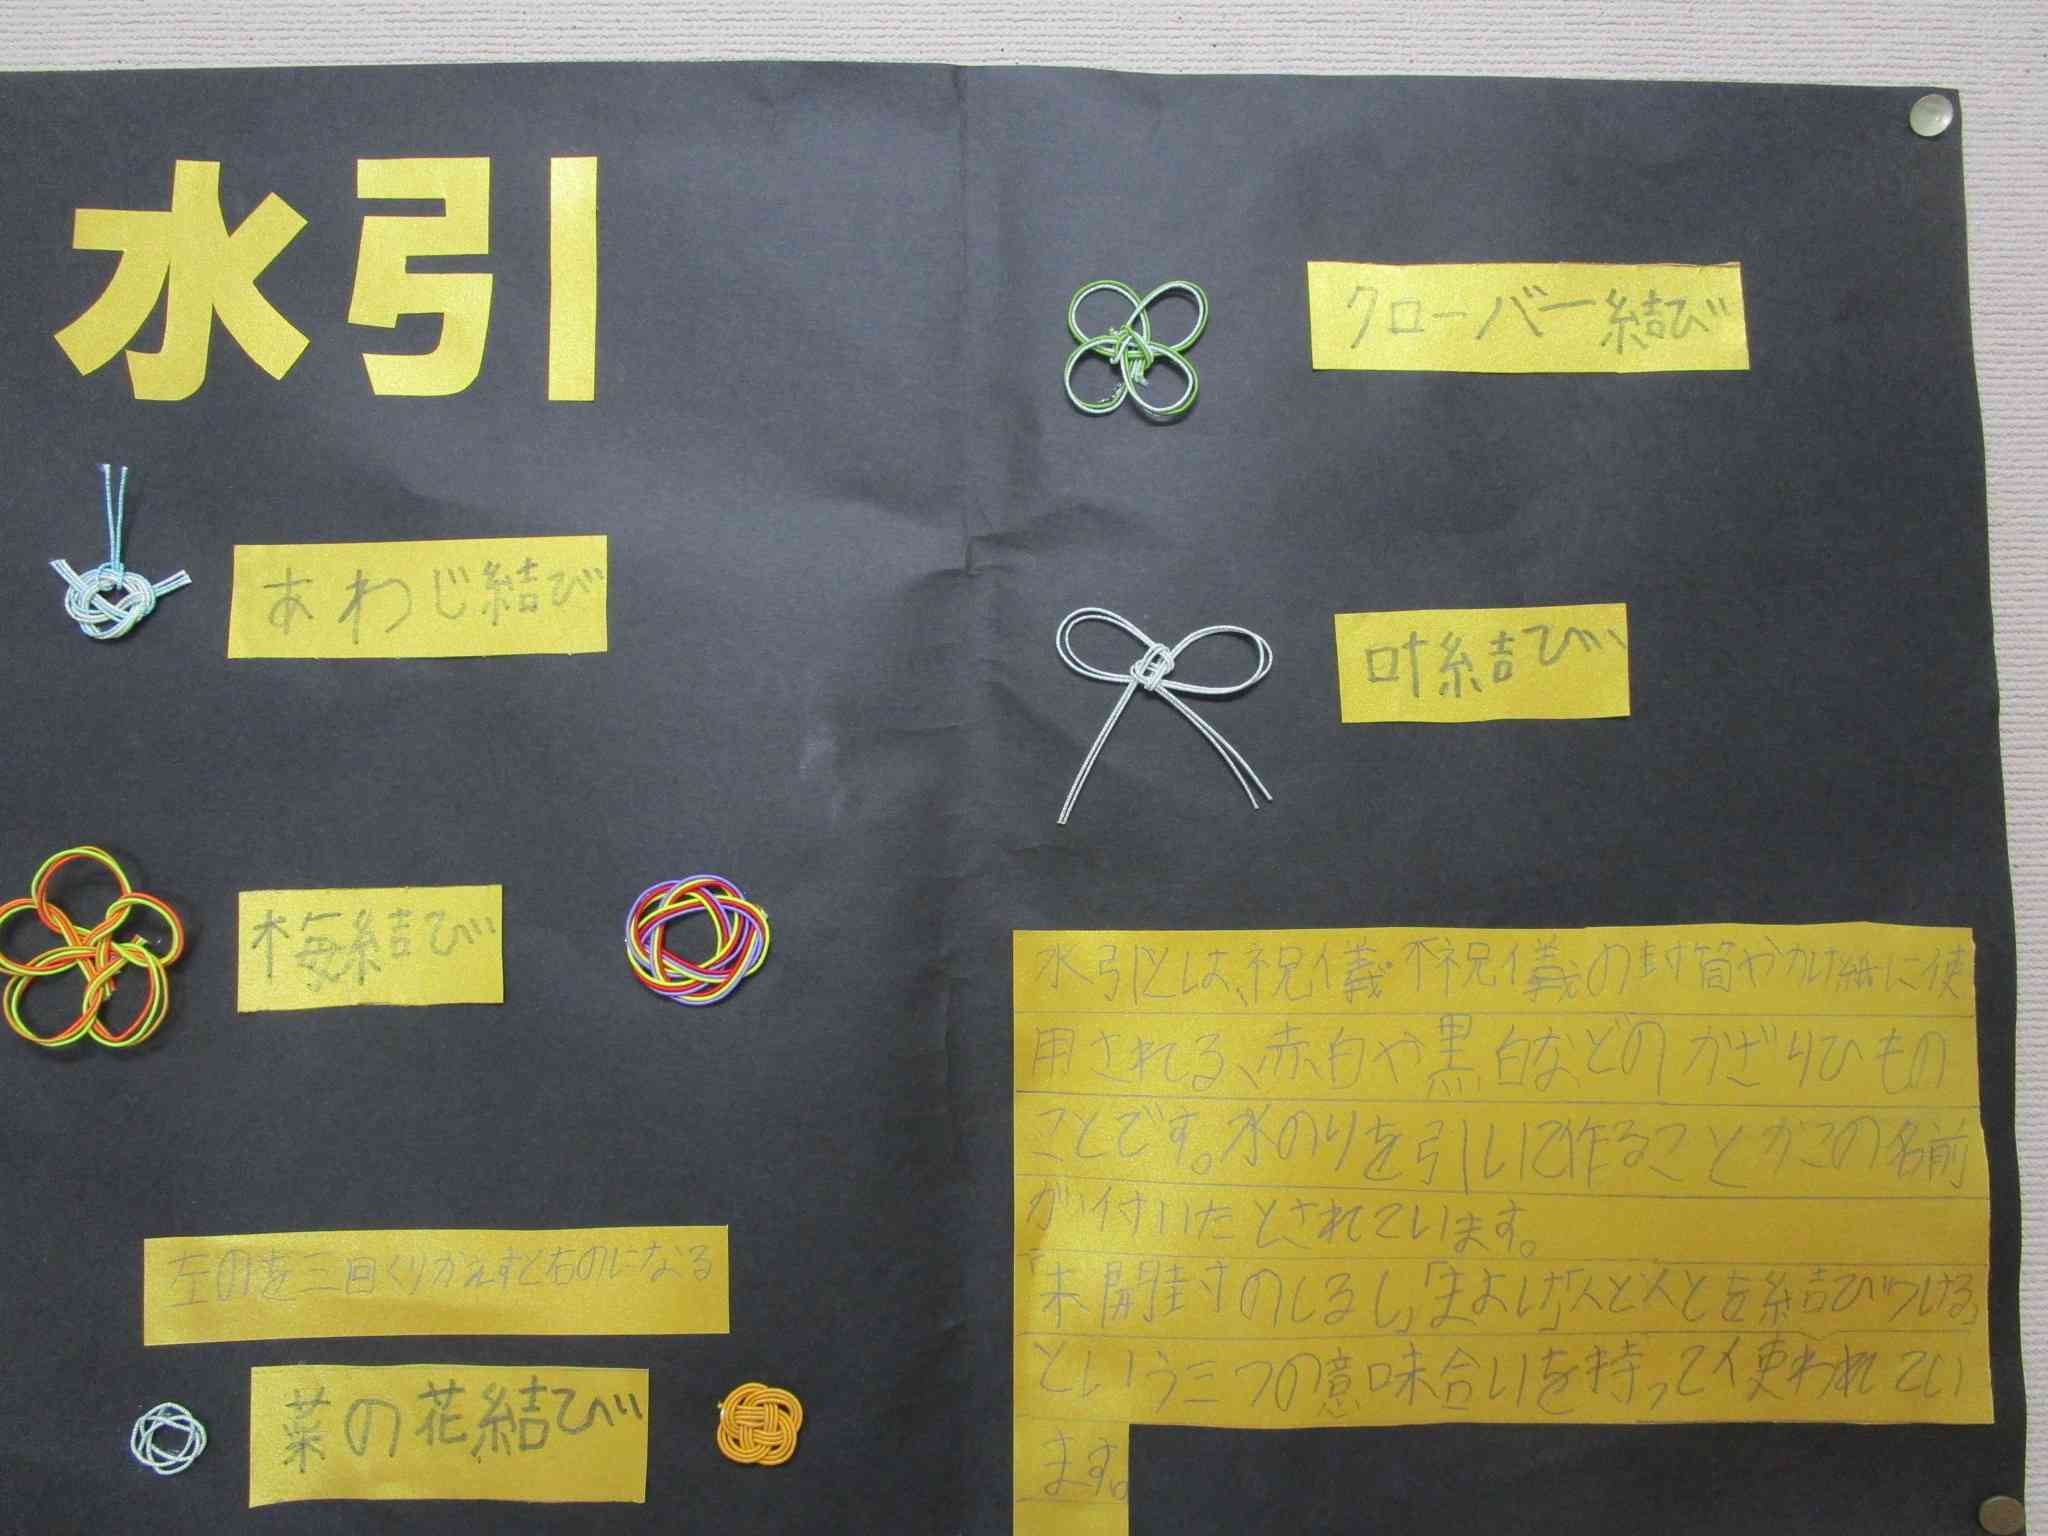 水引
あわじ結び
梅結び
左のを三回くりかえすと右のになる
菜の花結び
クローバー結び
叶結び
水引とは、祝儀・不祝儀の封筒やかけ紙に使
用される、赤白や黒白などのかざりひもの
ことです。水のりを引いて作ることがこの名前
が付いたとされています。
未開封のしるし」「まよけ」「人と人とを結びつける」
という三つの意味合いを持って使われてい
ます。